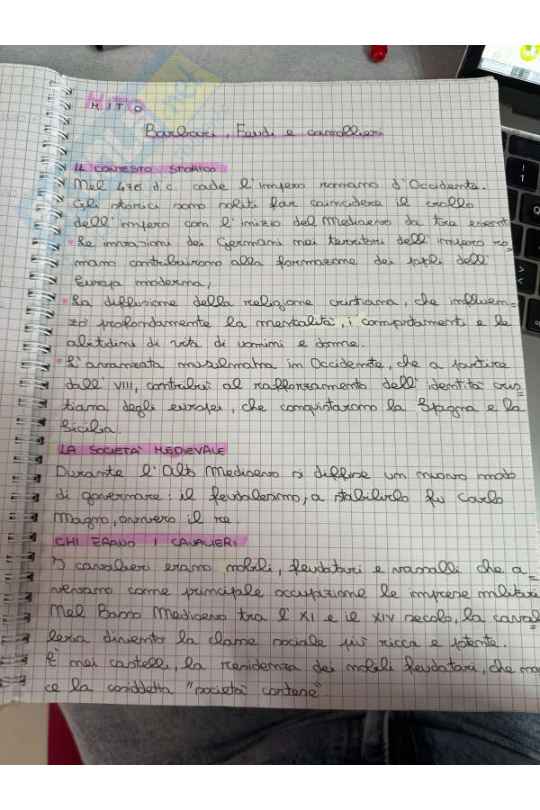 MITO
Barbari, Feudi e cavallieri
IL CONTESTO STORICO
Nel 476 d.c. cade l'impero romano d'Occidente.
Gli storici sono soliti far coincidere il crollo
dell'impero con l'inizio del Medioevo da tre eventi
• Le invasioni dei Germani nei territori dell'impero ro-
mano contribuirono alla formazione dei popoli dell'
Europa moderna,
• La diffusione della religione cristiana, che influen-
zò profondamente la mentalità, i comportamenti e le
abitudini di vita di uomini e donne.
• L'avanzata musulmana in Occidente, che a partire
dall'VIII, contribuì al rafforzamento dell'identità cris
tiana degli europei, che conquistarono la Spagna e la
Sicilia.
LA SOCIETA' MEDIEVALE
Durante l'Alto Medioevo si diffuse un nuovo modo
di governare il feudalesimo, a stabilirlo fu Carlo
Magno, ovvero il re
CHI ERANO I CAVALIERI
I cavalieri erano nobili, feudatari e vassalli che a-
vevano come principale occupazione le imprese militari
Nel Basso Medioevo tra l'XI e il XIV secolo, la caval
leria diventò la classe sociale più ricca e potente.
È nei castelli, la residenza dei nobili feudatari, che nas
ce la cosiddetta "società cortese"